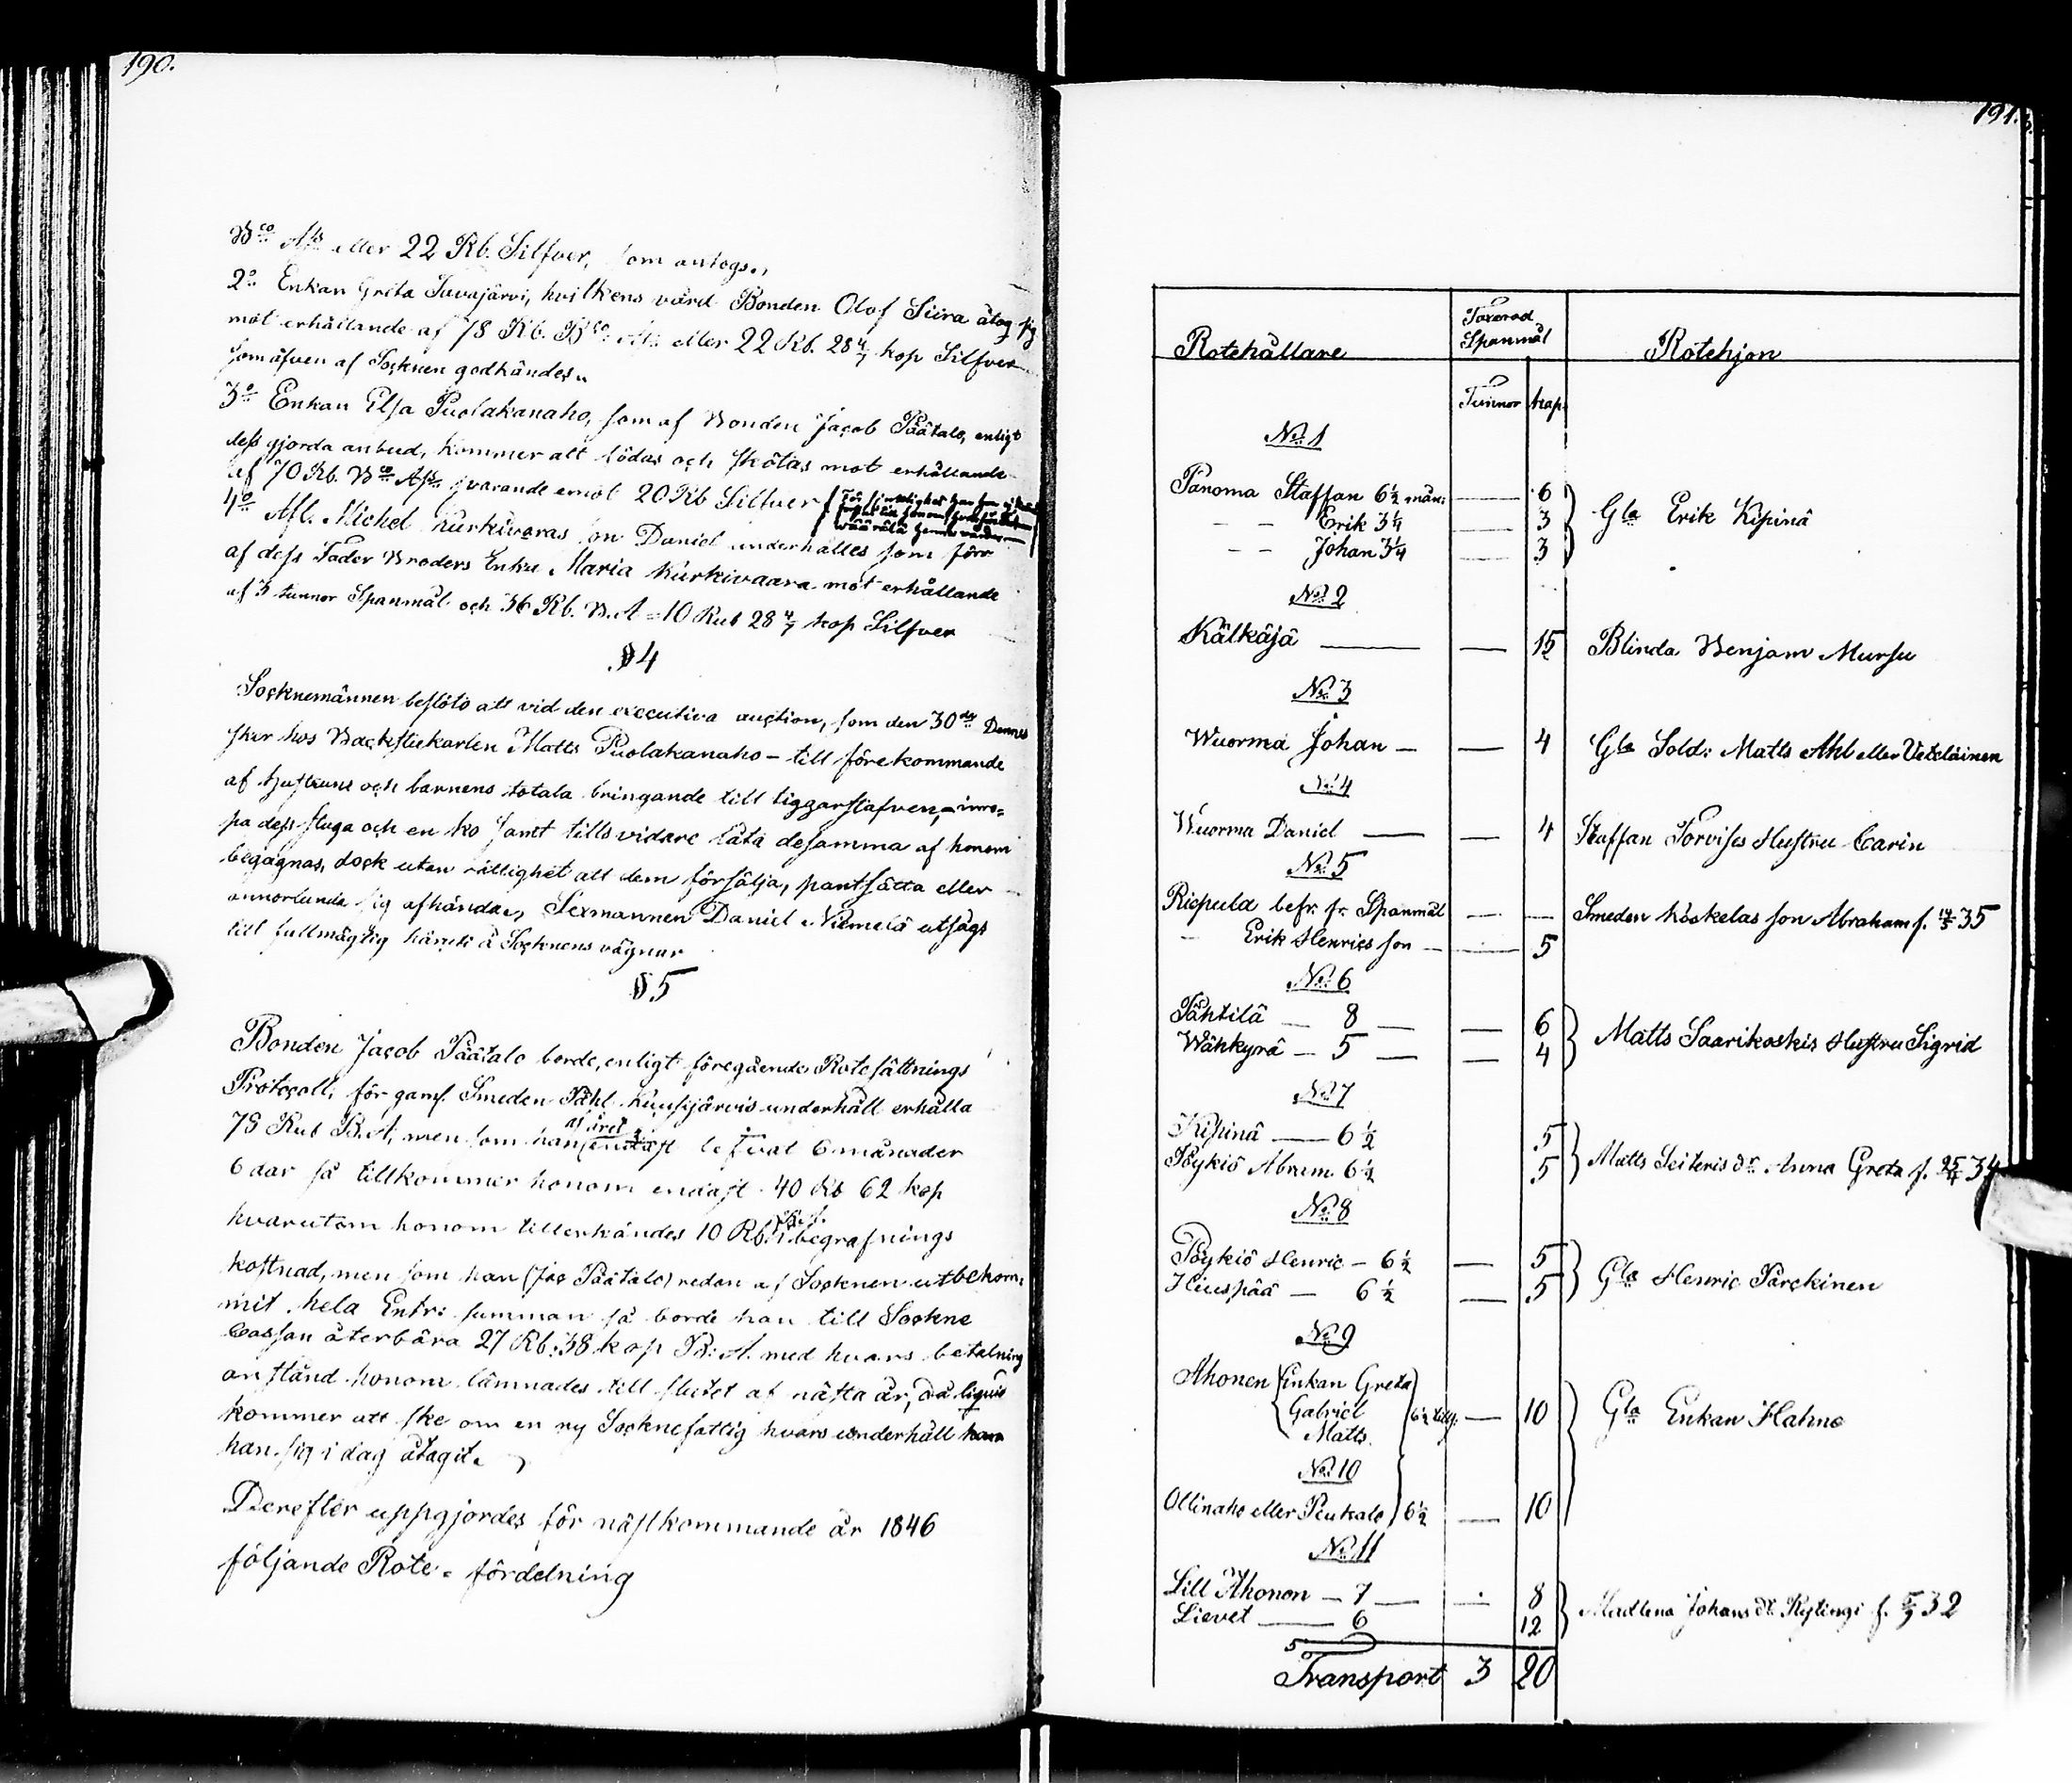 190.
B<sup>co</sup> A<sup>ss</sup> eller 22 Rb. Silfver, som antogs.,
2<sup>o</sup> Enkan Greta Juvajärvi, hvilkens vård Bonden Olof Siira åtog sig
mot erhållande af 78 Rb. B<sup>co</sup> A<sup>ss</sup> eller 22 Rb. 28 4/7 kop Silfver
som äfven af Socknen godkändes.
3<sup>o</sup> Enkan Elsa Puolakanaho, som af Bonden Jacob Päätalo, enligt
dess gjorda anbud, kommer att födas och skötas mot erhållande
af 70 Rb. B<sup>co</sup> A<sup>ss</sup> svarande emot 20 Rb Silfver
4<sup>o</sup> Afl. Michel Kurkivaras son Daniel underhålles som förr
af dess Fader Broders Enka Maria Kurkivaara mot erhållande
af 3 tunnor Spanmål och 36 Rb. B.A = 10 Rub 28 4/7 kop Silfver
§ 4
Socknemännen beslöto att vid den executiva auction, som den 30<sup>de</sup> Dennes
sker hos Backstukarlen Matts Puolakanaho - till förekommande
af hustruns och barnens totala bringande till tiggarstafven, - inro=
pa dess stuga och en ko samt tillsvidare låta desamma af honom
begagnas, dock utan rättighet att dem försälja, pantsätta eller
annorlunda sig afhända., Sexmannen Daniel Niemelä utsågs
till fullmägtig häruti å Socknens vägnar
§ 5
Bonden Jacob Päätalo borde, enligt föregående Rotesättnings
Protocoll, för gaml. Smeden Påhl Kuusijärvis underhåll erhålla
78 Rub B.A, men som han af året endast lefvat 6 månader
6 dar så tillkommer honom endast 40 Rb 62 kop
hvarutom honom tillerkändes 10 Rb. i begrafnings
kostnad, men som han (Jac Päätalo) redan af Socknen utbekom=
mit hela Entr: summan så borde han till Sockne
Cassan återbära 27 Rb: 38 kop B: A. med hvars betalning
anstånd honom lämnades till slutet af nästa år, då liquid
kommer att ske om en ny Socknefattig hvars underhåll
han sig i dag åtagit.
Derefter uppgjordes för nästkommande år 1846
följande Rote-fördelning
191.
Rotehållare Taxerad Spanmål Rotehjon
Tunnor kap.
No 1
Panoma Staffan 6½ mån: — 6 Gla Erik Kipinä
- - Erik 3¼ — 3
- - Johan 3¼ — 3
No 2
Kälkäjä — — 15 Blinda Benjam Mursu
No 3
Wuorma Johan — — 4 Gla Sold: Matts Ahl eller Veteläinen
No 4
Wuorma Daniel — — 4 Staffan Torvises Hustru Carin
No 5
Riepula befr. fr. Spanmål — — Smeden Köskelas son Abraham f. 14/5 35
- Erik Henrics son — — 5
No 6
Tähtilä — 8 — — 6 Matts Saarikoskis Hustru Sigrid
Wähkyrä — 5 — — 4
No 7
Kipinä — 6½ 5 Matts Seiteris dr Anna Greta f. 25/4 34
Pöykiö Abram 6½ 5
No 8
Pöykiö Henric — 6½ — 5 Gla Henric Parckinen
Hiuspää — 6½ — 5
No 9
Ahonen Enkan Greta
Gabriel 6½ tills. — 10 Gla Enkan Hahno
Matts
No 10
Ollinaho eller Peukalo 6½ — 10
No 11
Lill Ahonen — 7 — — 8 Madlena Johans dr Kylingi f. 5/9 32
Lievet — 6 12
Transport 3 20